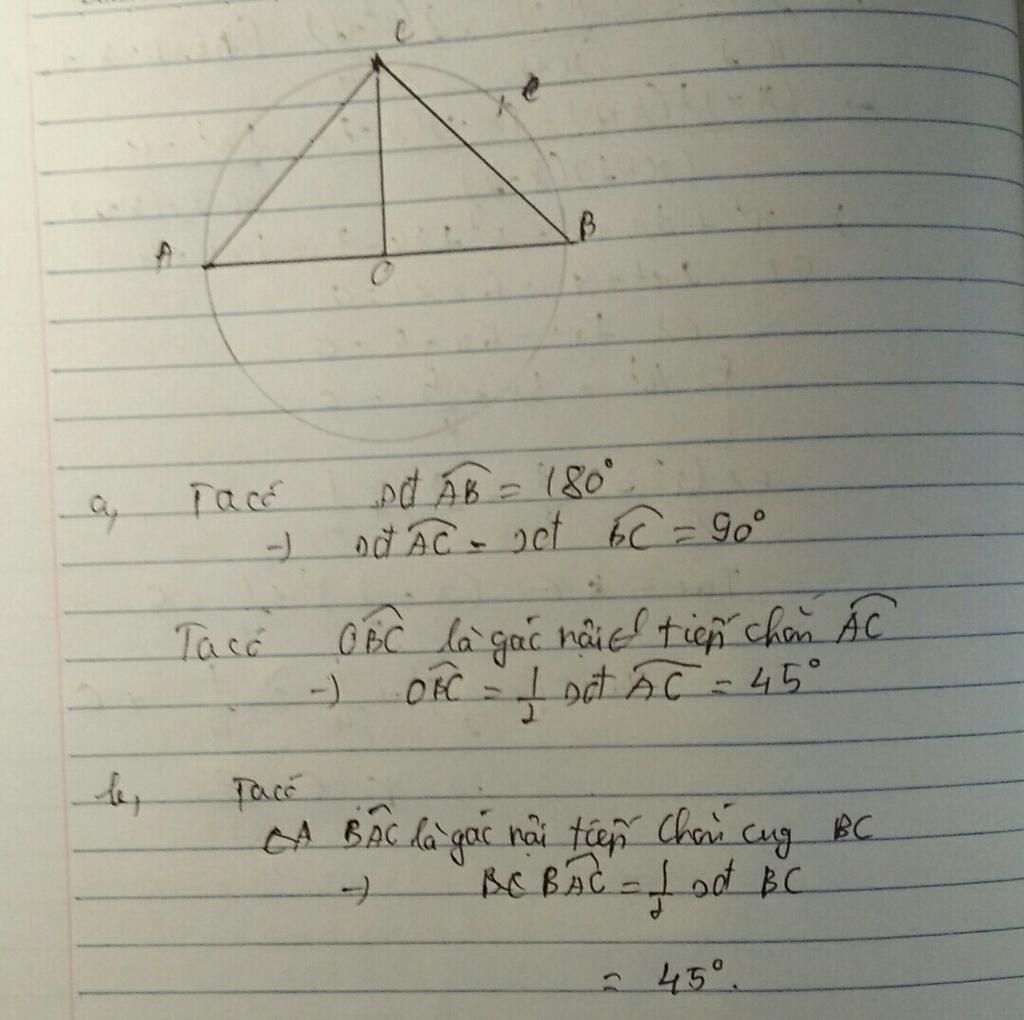 C
e
A
B
O
a, Ta có sđ AB = 180°
→ sđ AC = sđ BC = 90°
Ta có OBC là góc nội tiếp chắn AC
→ OBC = 1/2 sđ AC = 45°
b, Ta có
BAC là góc nội tiếp chắn cug BC
→ BAC = 1/2 sđ BC
= 45°.